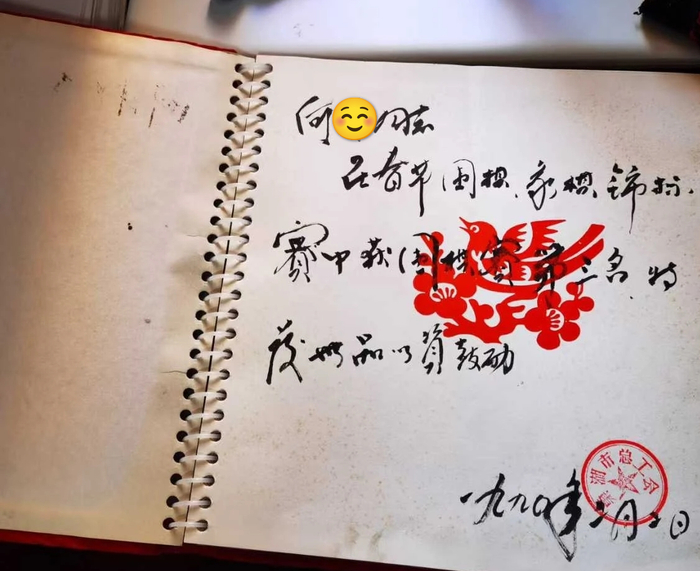 何 同志
在春节围棋、象棋锦标
赛中获围棋赛第三名、特
发奖品以资鼓励
湖市总工会
一九九0年二月 日